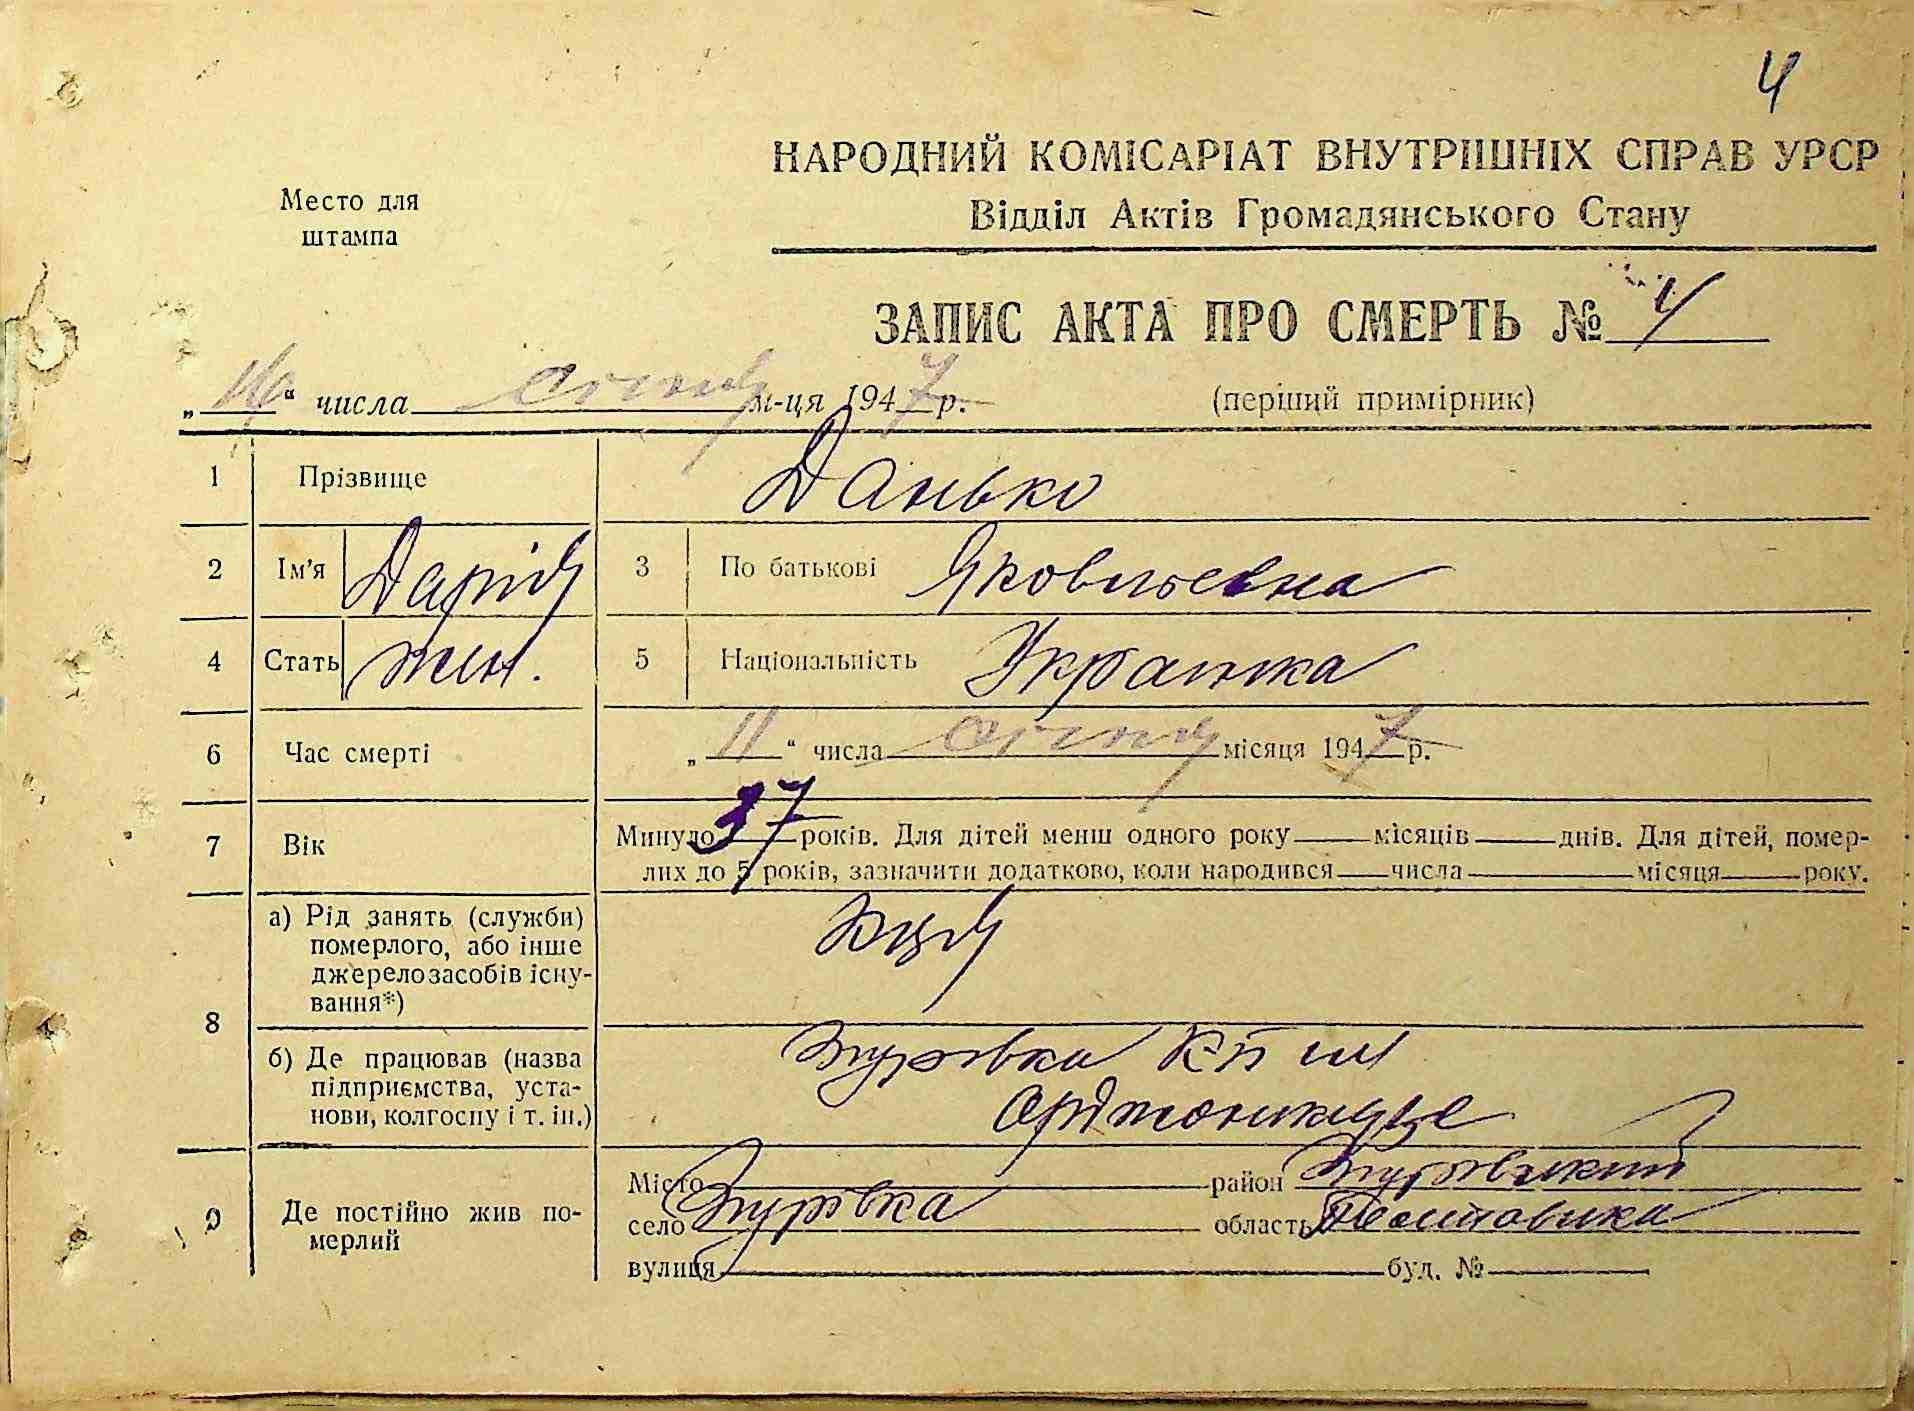 4
НАРОДНИЙ КОМІСАРІАТ ВНУТРІШНІХ СПРАВ УРСР
Відділ Актів Громадянського Стану
Место для
штампа
ЗАПИС АКТА ПРО СМЕРТЬ № 4
„16“ числа січня м-ця 1947 р.
(перший примірник)
1 Прізвище Данько
2 Ім'я Дарія 3 По батькові Яковльевна
4 Стать жін. 5 Національність Українка
6 Час смерті „11“ числа січня місяця 1947 р.
7 Вік Минуло 37 років. Для дітей менш одного року місяців днів. Для дітей, помер-
лих до 5 років, зазначити додатково, коли народився числа місяця року.
8 а) Рід занять (служби)
померлого, або інше
джерело засобів існу-
вання*)
б) Де працював (назва
підприємства, уста-
нови, колгоспу і т. ін.)
Згурівка
Орджоникидзе
9 Де постійно жив по-
мерлий
Місто район Згурівський
село Згурівка область Полтавська
вулиця буд. №